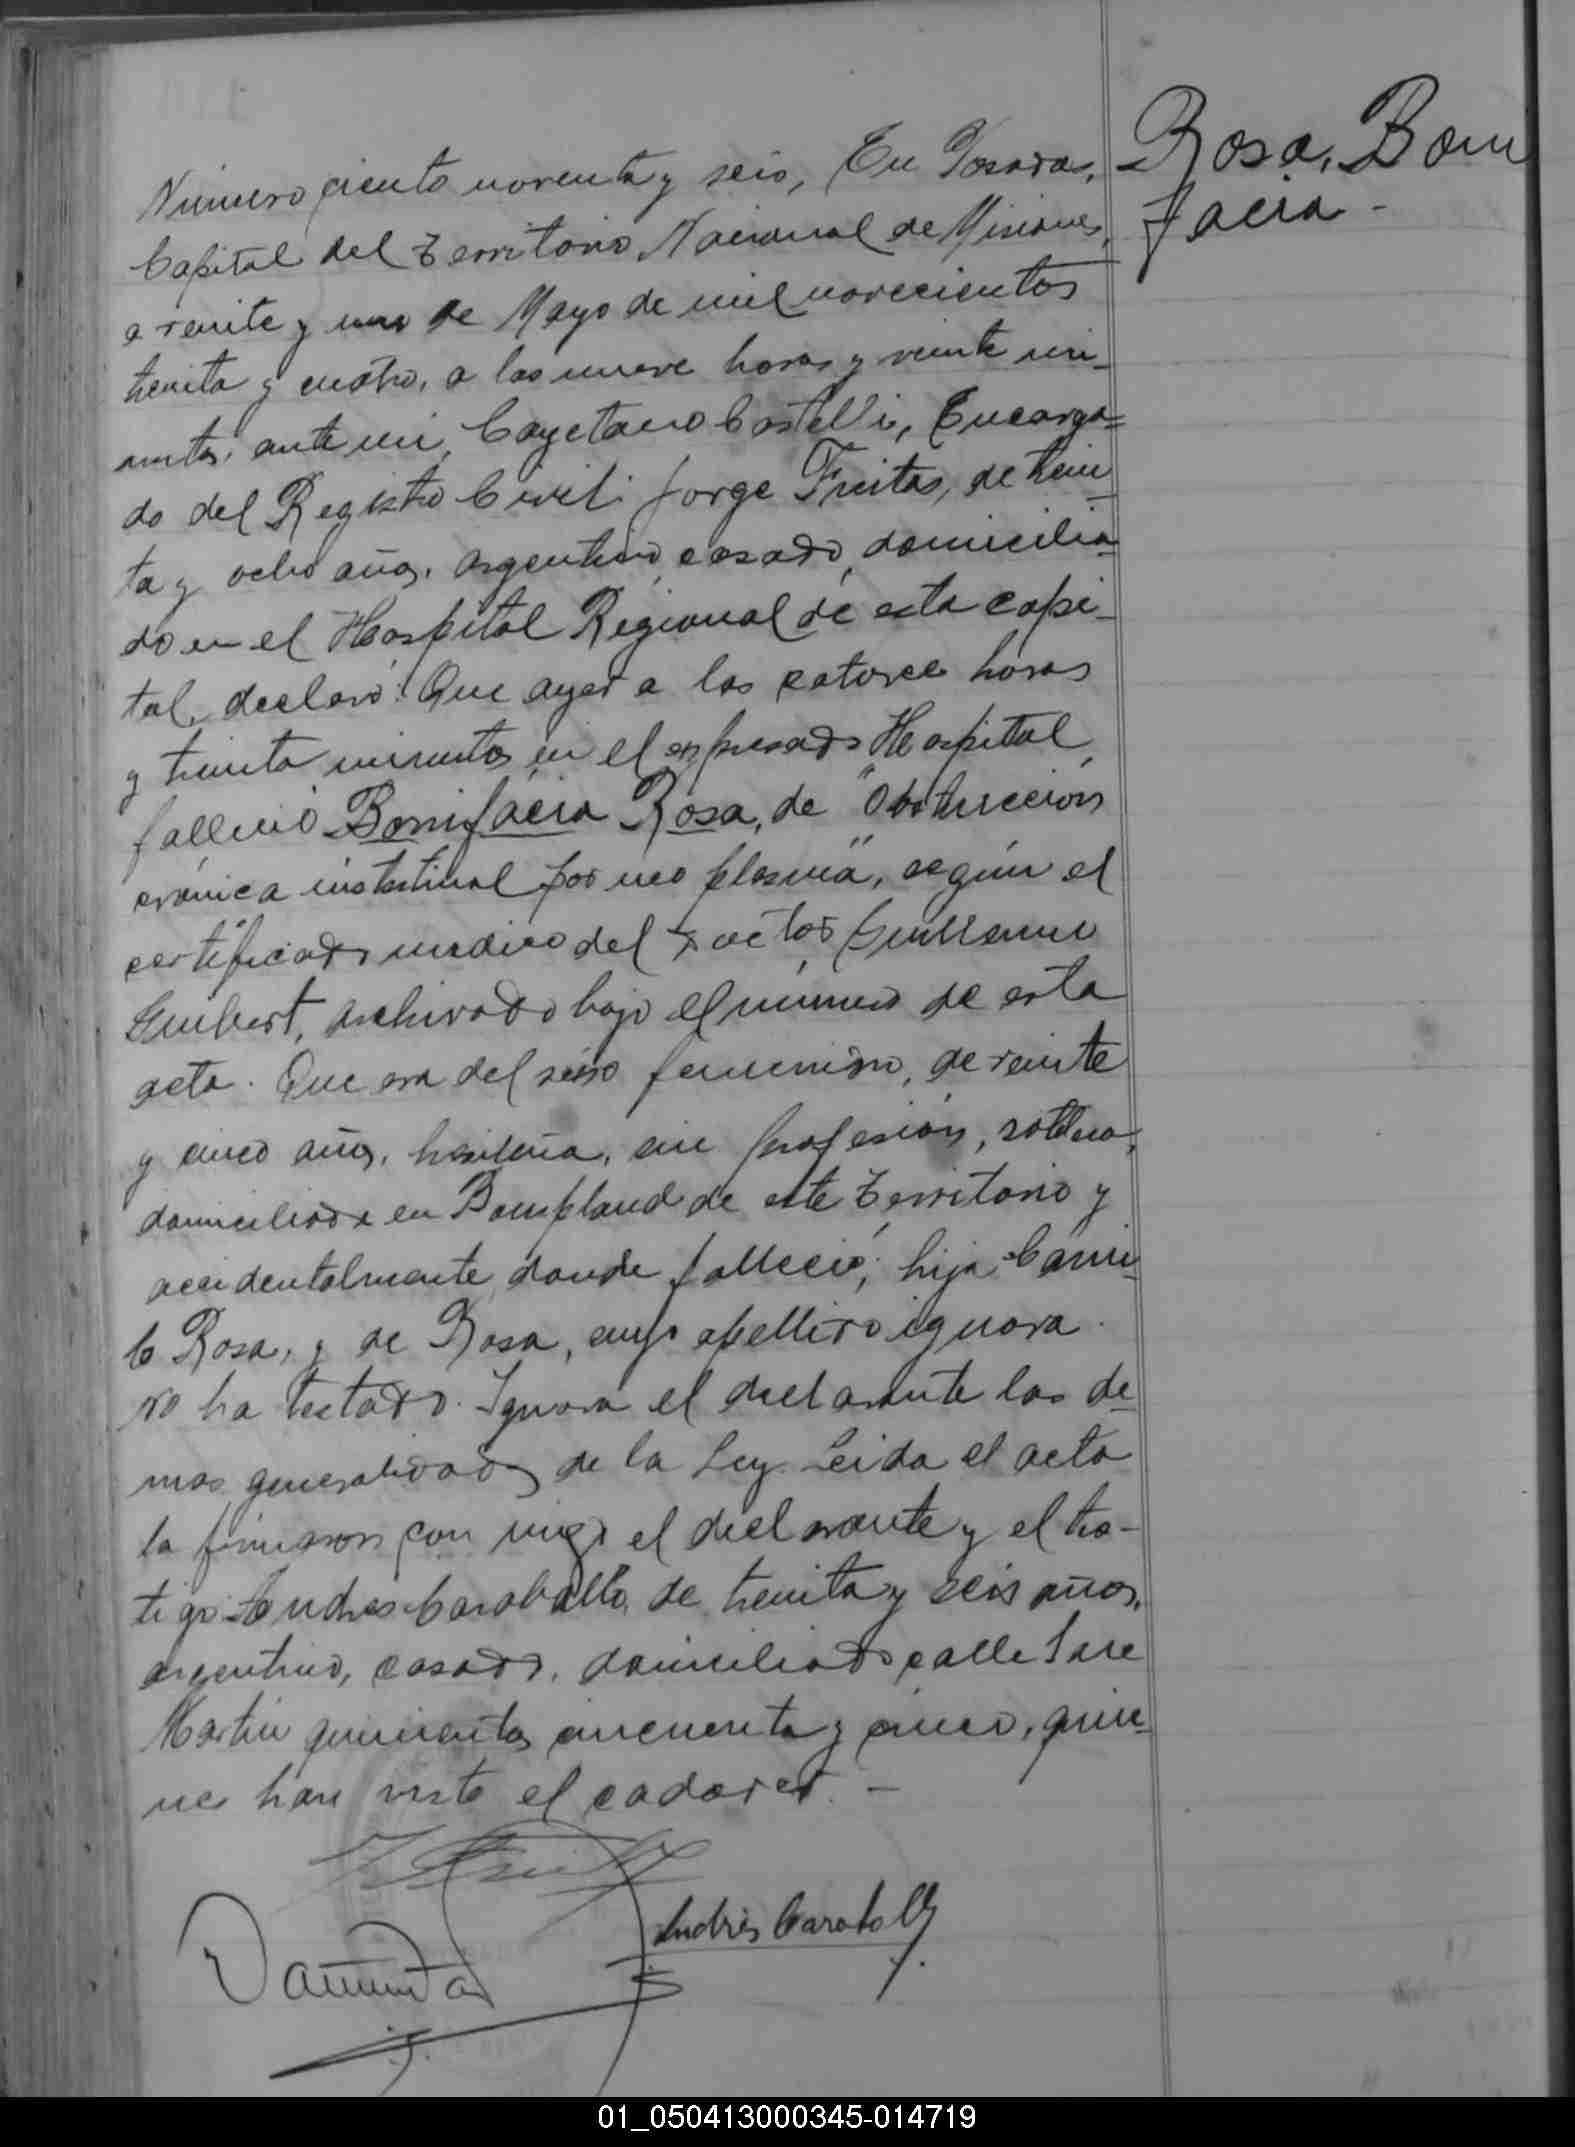 Rosa, Boni
facia -
Número ciento noventa y seis, En Posadas,
Capital del Territorio Nacional de Misiones,
a veinte y uno de Mayo de mil novecientos
treinta y cuatro, a las nueve horas y veinte mi-
nutos, ante mi, Cayetano Castelli, Encarga=
do del Registro Civil: Jorge Freitas, de trein-
ta y ocho años, argentino, casado, domicilia-
do en el Hospital Regional de esta capi-
tal, declaró: Que ayer a las catorce horas
y treinta minutos en el expresado Hospital,
falleció Bonifacia Rosa, de "Obstrucción
crónica instestinal por neo plasma", según el
certificado medico del Doctor Guillermo
Guibert, archivado bajo el número de esta
acta. Que era del sexo femenino, de veinte
y cinco años, brasileña, sin profesión, soltera,
domiciliada en Bompland de este Territorio y
accidentalmente donde falleció; hija Cami-
lo Rosa, y de Rosa, cuyo apellido ignora.
No ha testado. Ignora el declarante las de-
mas generalidades de la Ley. Leida el acta
la firmaron con migo el declarante y el tes-
tigo Andres Caraballo, de treinta y seis años,
argentino, casado, domiciliado calle San
Martin quinientos cincuenta y cinco, quie-
nes han visto el cadaver. -
Andrés Caraballo
01_050413000345-014719